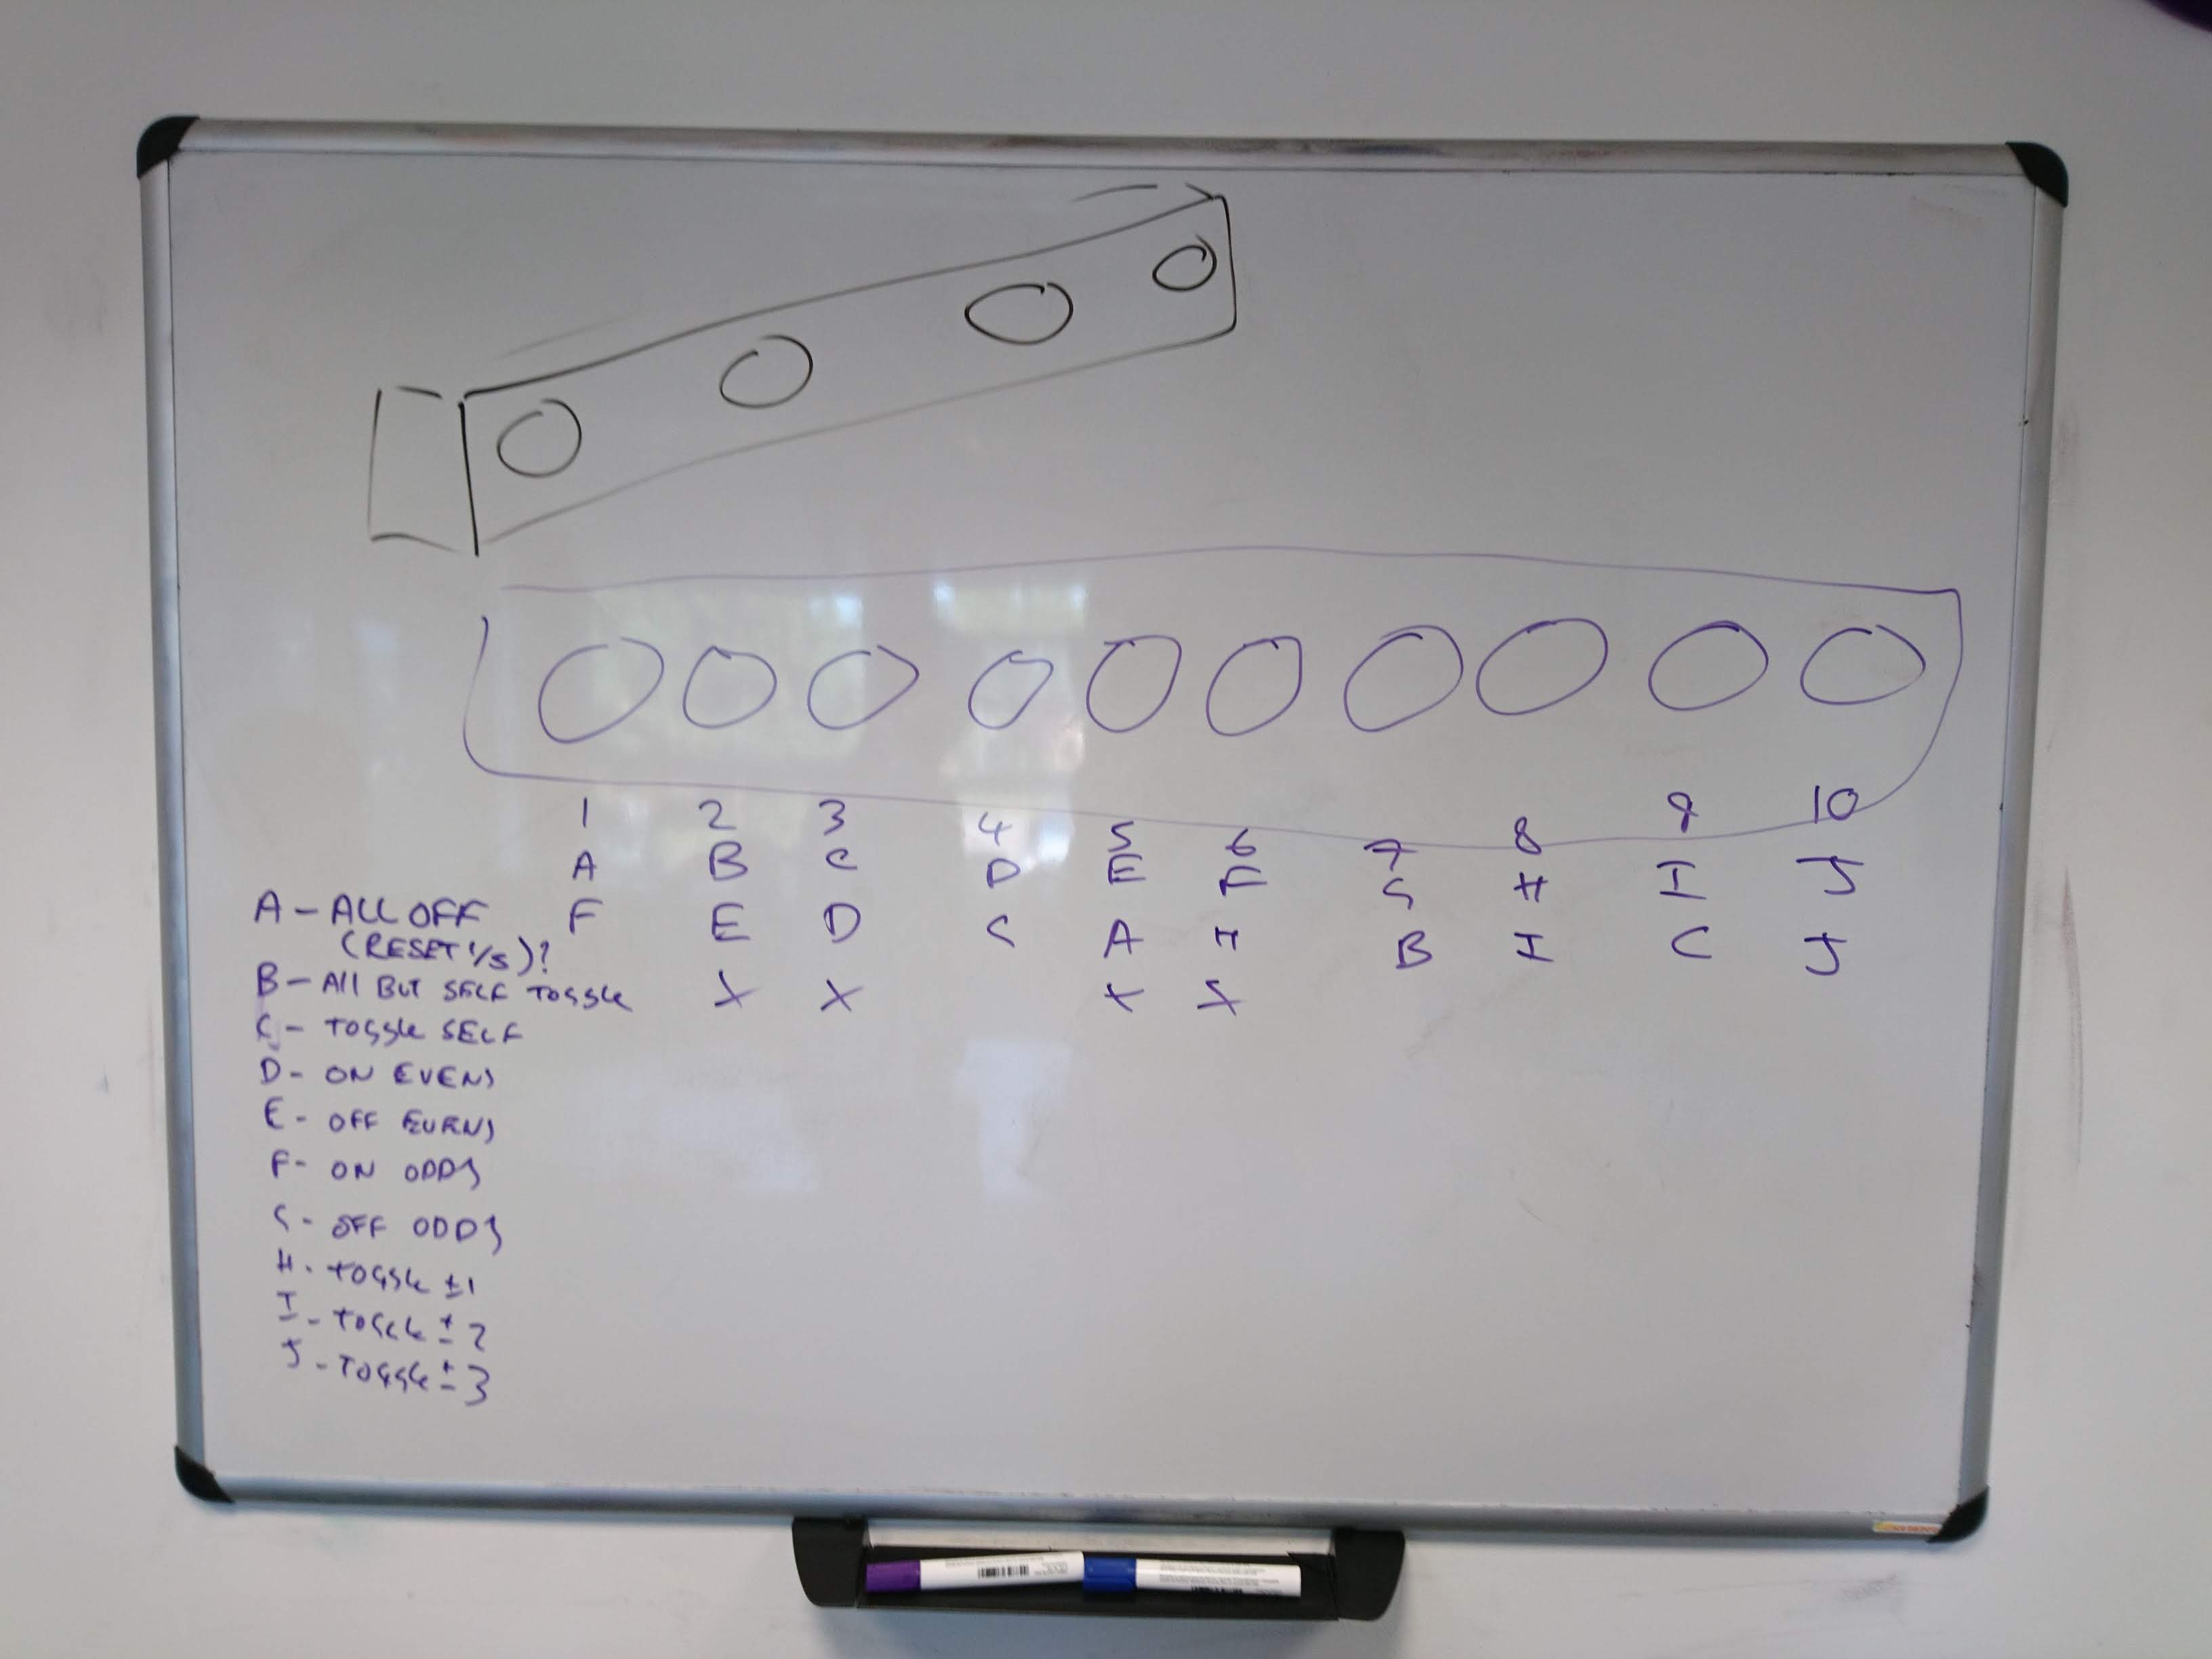 1 2 3 4 5 6 7 8 9 10
A B C D E F G H I J
F E D C A H B I C J
X X X X
A - ALL OFF
(RESET 1/s)?
B - All BUT SELF TOGGLE
C - TOGGLE SELF
D - ON EVENS
E - OFF EVENS
F - ON ODDS
G - OFF ODDS
H - TOGGLE ±1
I - TOGGLE ±2
J - TOGGLE ±3